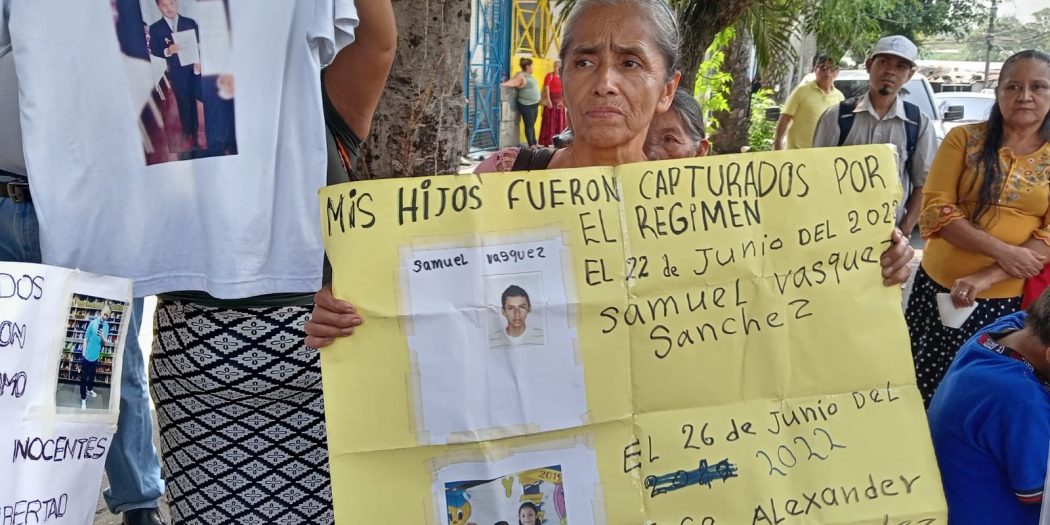 MIS HIJOS FUERON CAPTURADOS POR
EL REGIMEN
EL 22 de Junio DEL 2022
samuel vasquez
samuel vasquez
Sanchez
EL 26 de Junio del
2022
Alexander
2019
DOS
ON
MO
INOCENTES
IBERTAD